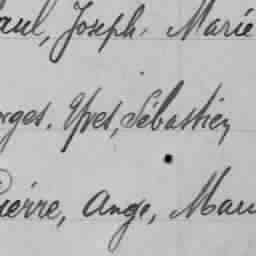 aul, Joseph. Marie
rges. Yves, Sébastien
Pierre, Ange, Mau